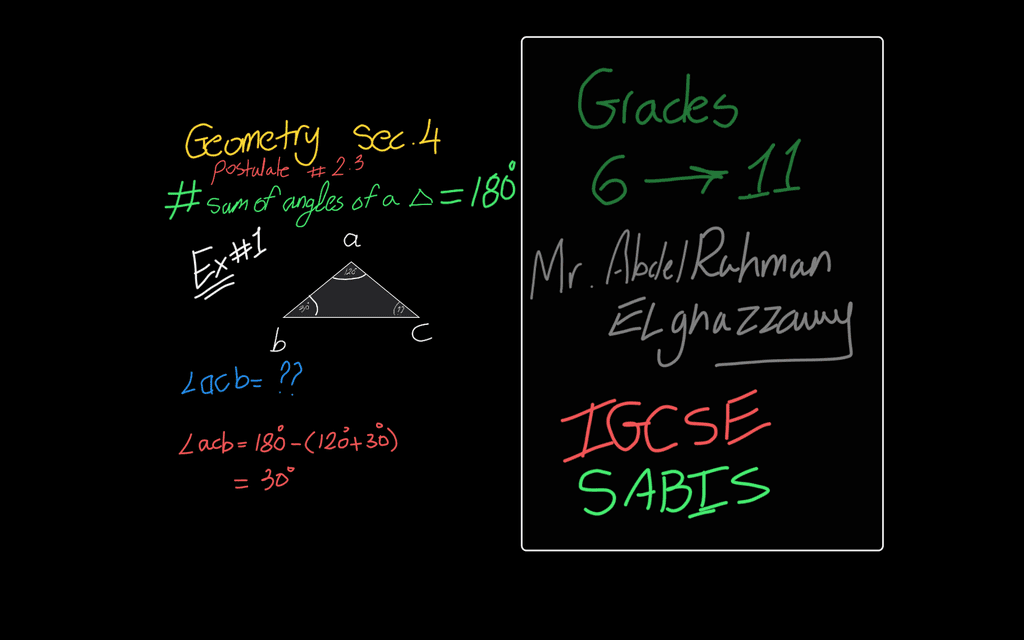 Geometry Sec.4
Postulate # 2.3
# Sum of angles of a △ = 180°
Ex#1
a
120°
30°
(??)
b
c
∠acb= ??
∠acb = 180° - (120° + 30°)
= 30°
Grades
6 → 11
Mr. AbdelRahman
ELghazzawy
IGCSE
SABIS